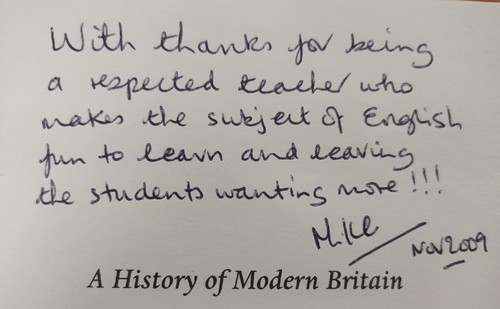 With thanks for being
a respected teacher who
makes the subject of English
fun to learn and leaving
the students wanting more!!!
Mike
Nov 2009
A History of Modern Britain